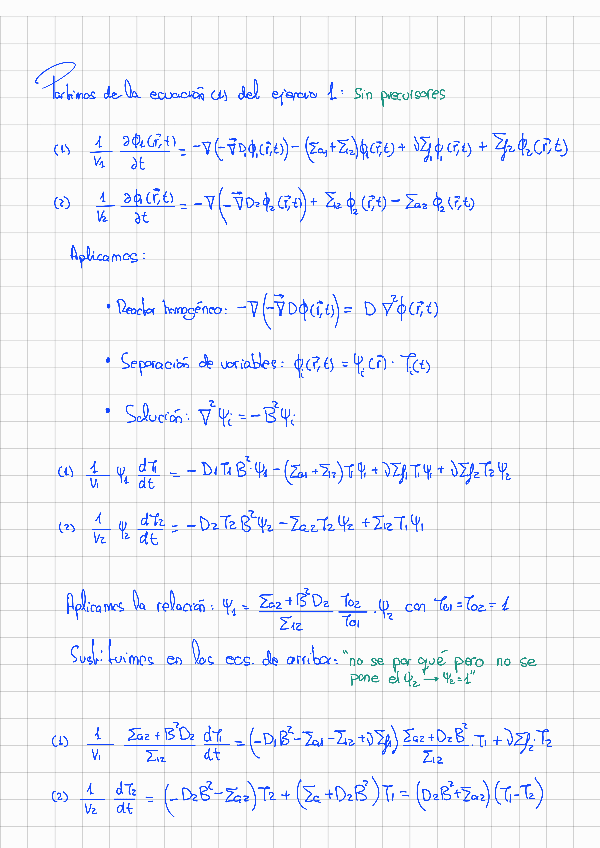 Partimos de la ecuación (1) del ejercicio 1: Sin precursores
(1) 1/V₁ ∂ϕ₁(r⃗,t)/∂t = -∇(-∇⃗D₁ϕ₁(r⃗,t)) - (Σa₁+Σ₁₂)ϕ₁(r⃗,t) + νΣf₁ϕ₁(r⃗,t) + Σf₂ϕ₂(r⃗,t)
(2) 1/V₂ ∂ϕ(r⃗,t)/∂t = -∇(-∇⃗D₂ϕ₂(r⃗,t)) + Σ₁₂ϕ₂(r⃗,t) - Σa₂ϕ₂(r⃗,t)
Aplicamos:
• Reactor homogéneo: -∇(-∇⃗Dϕ(r⃗,t)) = D∇²ϕ(r⃗,t)
• Separación de variables: ϕᵢ(r⃗,t) = Ψᵢ(r⃗)·Tᵢ(t)
• Solución: ∇²Ψᵢ = -B²Ψᵢ
(1) 1/V₁ Ψ₁ dT₁/dt = -D₁T₁B²·Ψ₁ - (Σa₁+Σ₁₂)T₁Ψ₁ + νΣf₁T₁Ψ₁ + νΣf₂T₂Ψ₂
(2) 1/V₂ Ψ₂ dT₂/dt = -D₂T₂B²Ψ₂ - Σa₂T₂Ψ₂ + Σ₁₂T₁Ψ₁
Aplicamos la relación: Ψ₁ = (Σa₂+B²D₂)/Σ₁₂ T₀₂/T₀₁ ·Ψ₂ con T₀₁=T₀₂=1
Sustituimos en las ecs. de arriba: "no se por qué pero no se
pone el Ψ₂ → Ψ₂=1"
(1) 1/V₁ (Σa₂+B²D₂)/Σ₁₂ dT₁/dt = (-D₁B²-Σa₁-Σ₁₂+νΣf₁) (Σa₂+D₂B²)/Σ₁₂ ·T₁ + νΣf₂·T₂
(2) 1/V₂ dT₂/dt = (-D₂B²-Σa₂)T₂ + (Σa+D₂B²)T₁ = (D₂B²+Σa₂)(T₁-T₂)